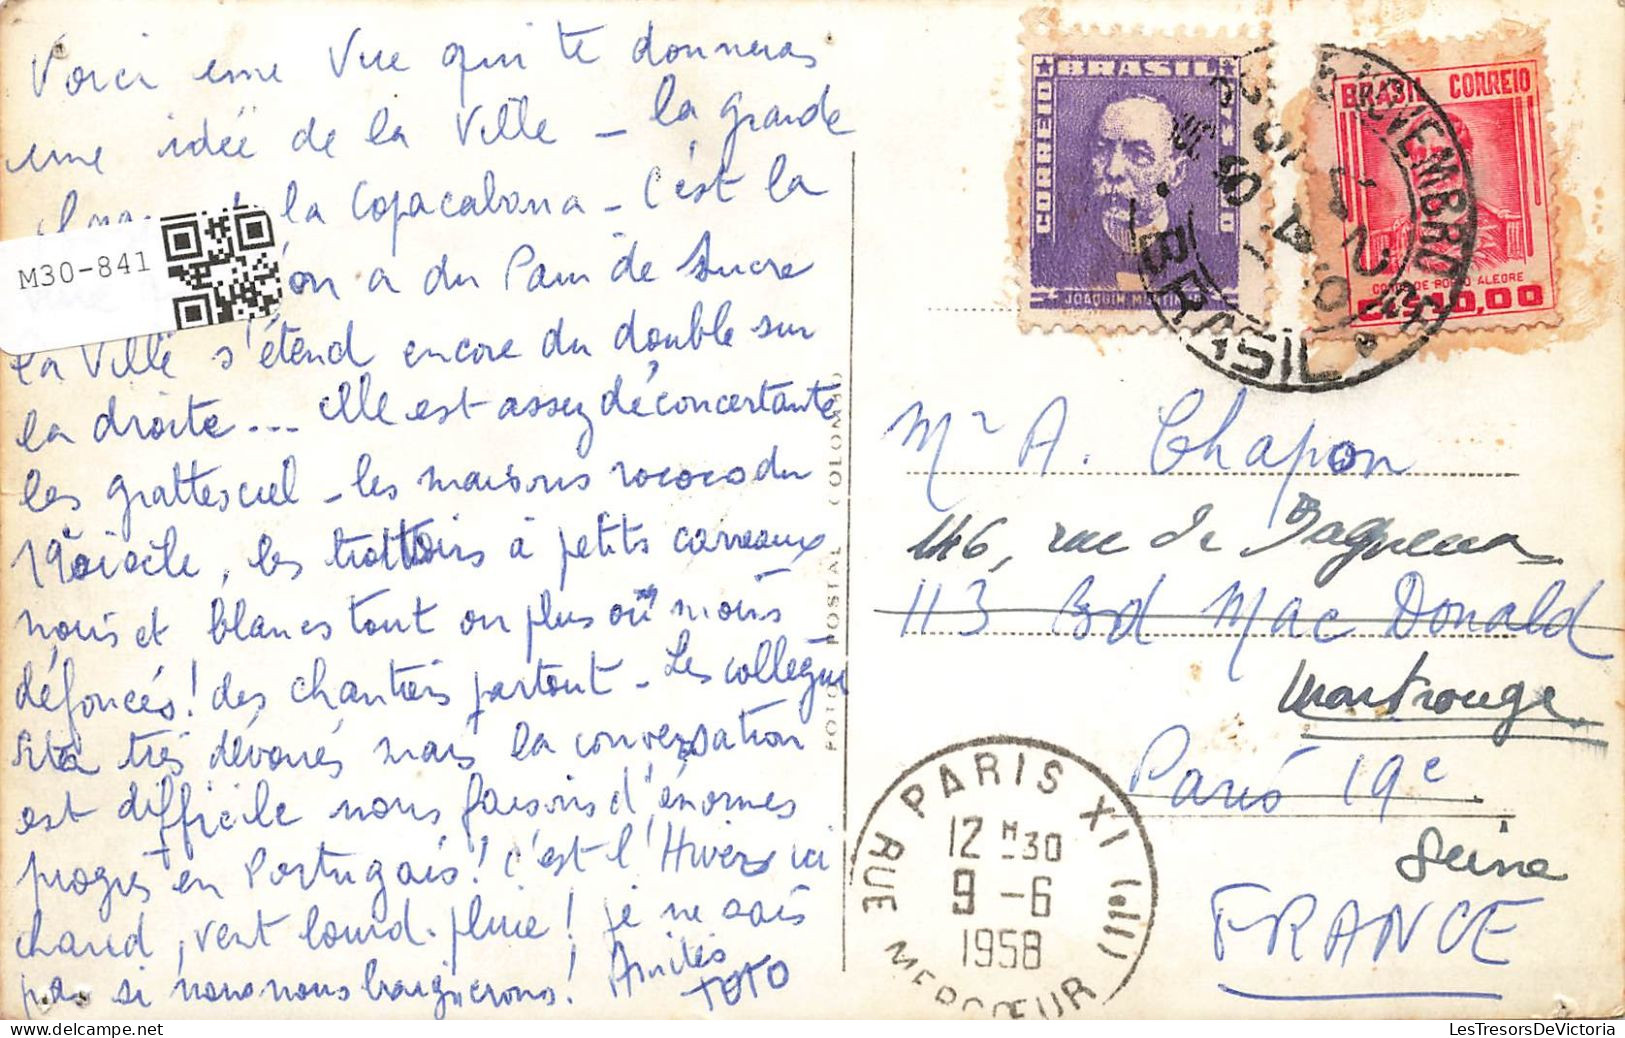 Voici une Vue qui te donneras
une idée de la Ville – la grande
la Copacabana – C'est la
on a du Pain de Sucre
La Ville s'étend encore du double sur
la droite... elle est assez déconcertante
les grattesciel – les maisons rococo du
19e siècle, les trottoirs à petits carreaux
noirs et blancs tout ou plus ou moins
défoncés! des chantiers partout – Les collègues
très dévoués mais la conversation
est difficile nous faisons d'énormes
progrès en Portugais! c'est l'Hiver ici
chaud, vent lourd. pluie! je ne sais
pas si nous nous baignerons! Amitiés
TOTO
M30-841
FOTO POSTAL COLOMBO
BRASIL
CORREIO
JOAQUIM MURTINHO
BRASIL CORREIO
CONDE DE PORTO ALEGRE
10,00
NOVEMBRO
BRASIL
Mr A. Chapon
146, rue de Bagneux
113 Bd Mac Donald
Montrouge
Paris 19e
Seine
FRANCE
PARIS XI
12 H 30
9 - 6
1958
RUE MERCOEUR
LesTresorsDeVictoria
delcampe.net